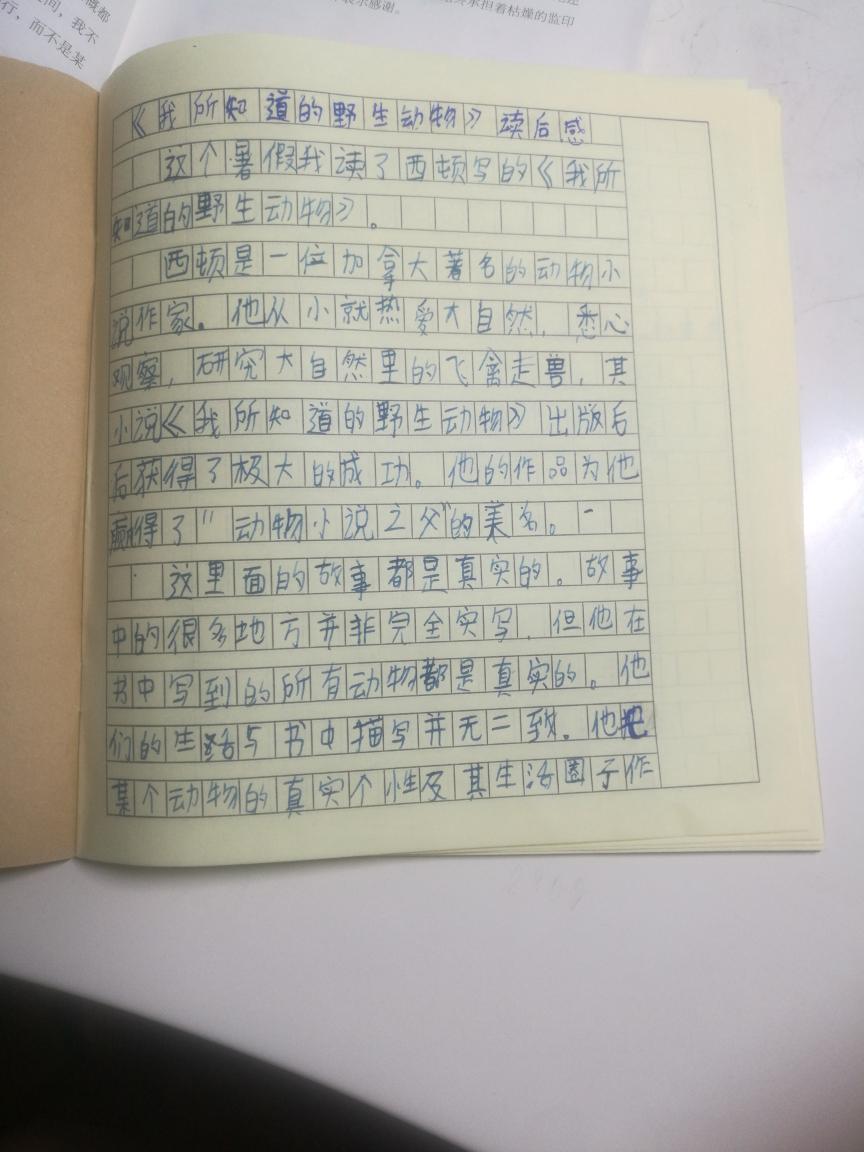 慨都
间，我不
行，而不是某
表示感谢。
承担着枯燥的监印
《我所知道的野生动物》读后感
这个暑假我读了西顿写的《我所
知道的野生动物》。
西顿是一位加拿大著名的动物小
说作家。他从小就热爱大自然，悉心
观察，研究大自然里的飞禽走兽，其
小说《我所知道的野生动物》出版后
后获得了极大的成功。他的作品为他
赢得了"动物小说之父"的美名。
这里面的故事都是真实的。故事
中的很多地方并非完全实写，但他在
书中写到的所有动物都是真实的。他
们的生活与书中描写并无二致。他把
某个动物的真实个性及其生活圈子作